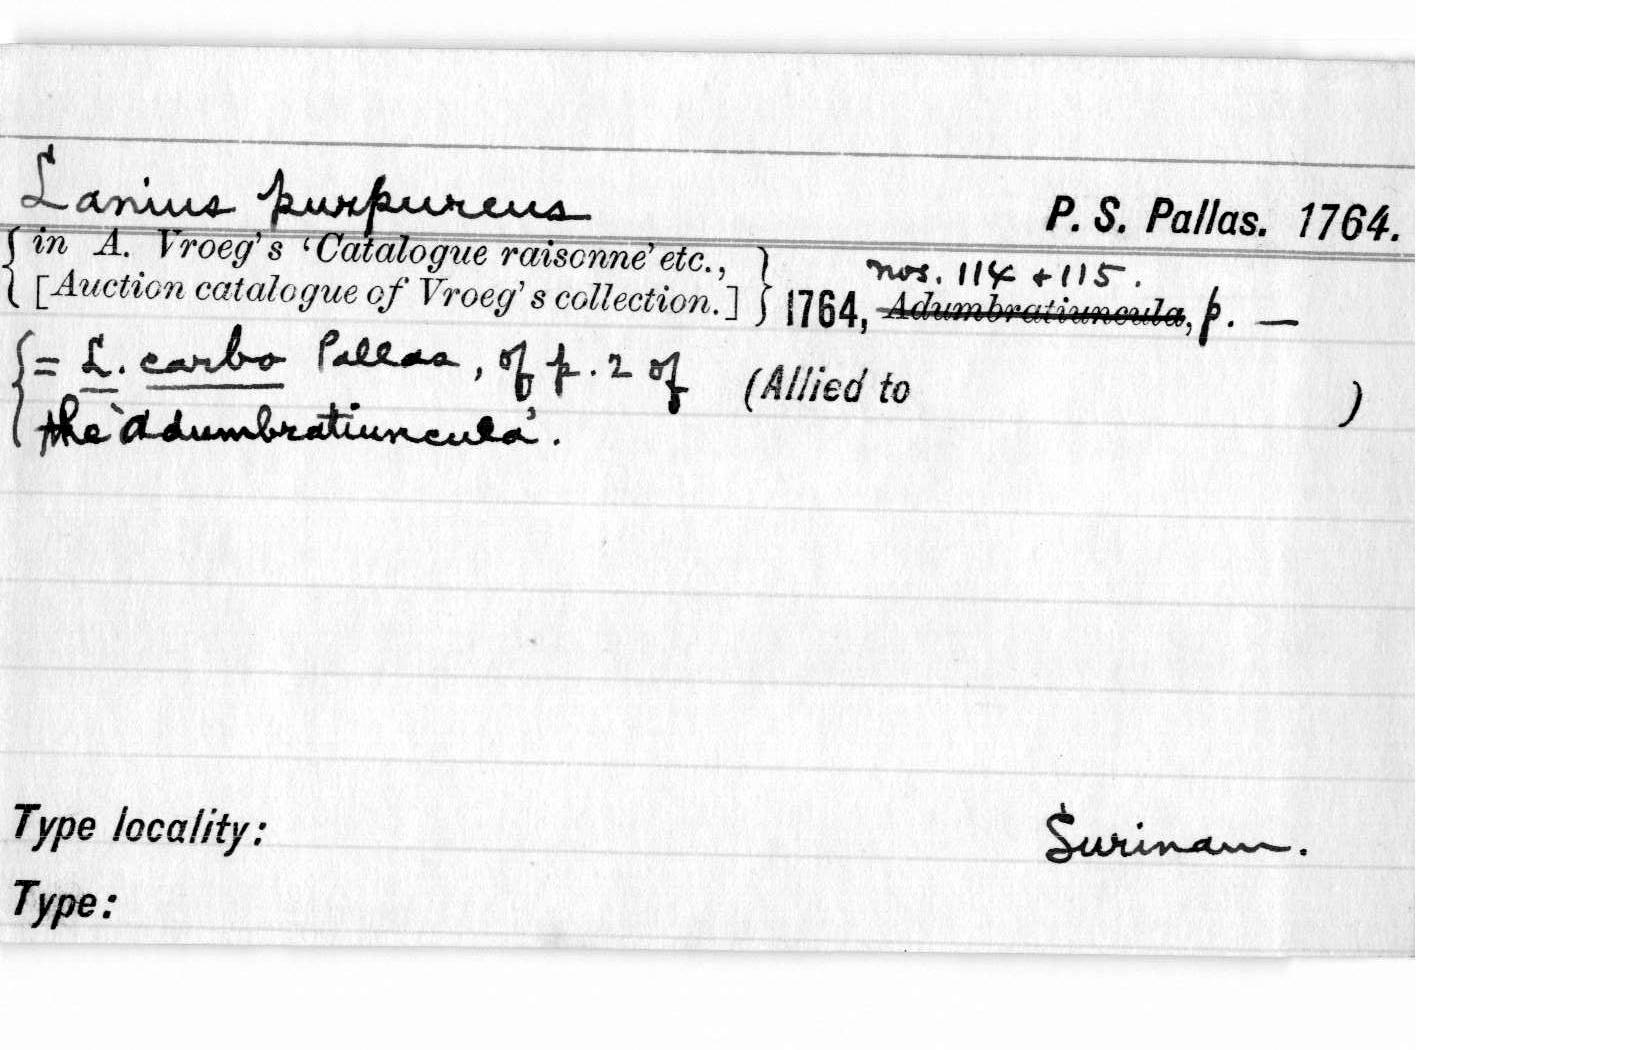 Lanius purpureus P. S. Pallas. 1764.
{ in A. Vroeg's 'Catalogue raisonne' etc., }
{ [Auction catalogue of Vroeg's collection.] } 1764, nos. 114 + 115. Adumbratiuncula, p. —
{ = L. carbo Pallas, of p. 2 of (Allied to )
the 'Adumbratiuncula'.
Type locality: Surinam.
Type: